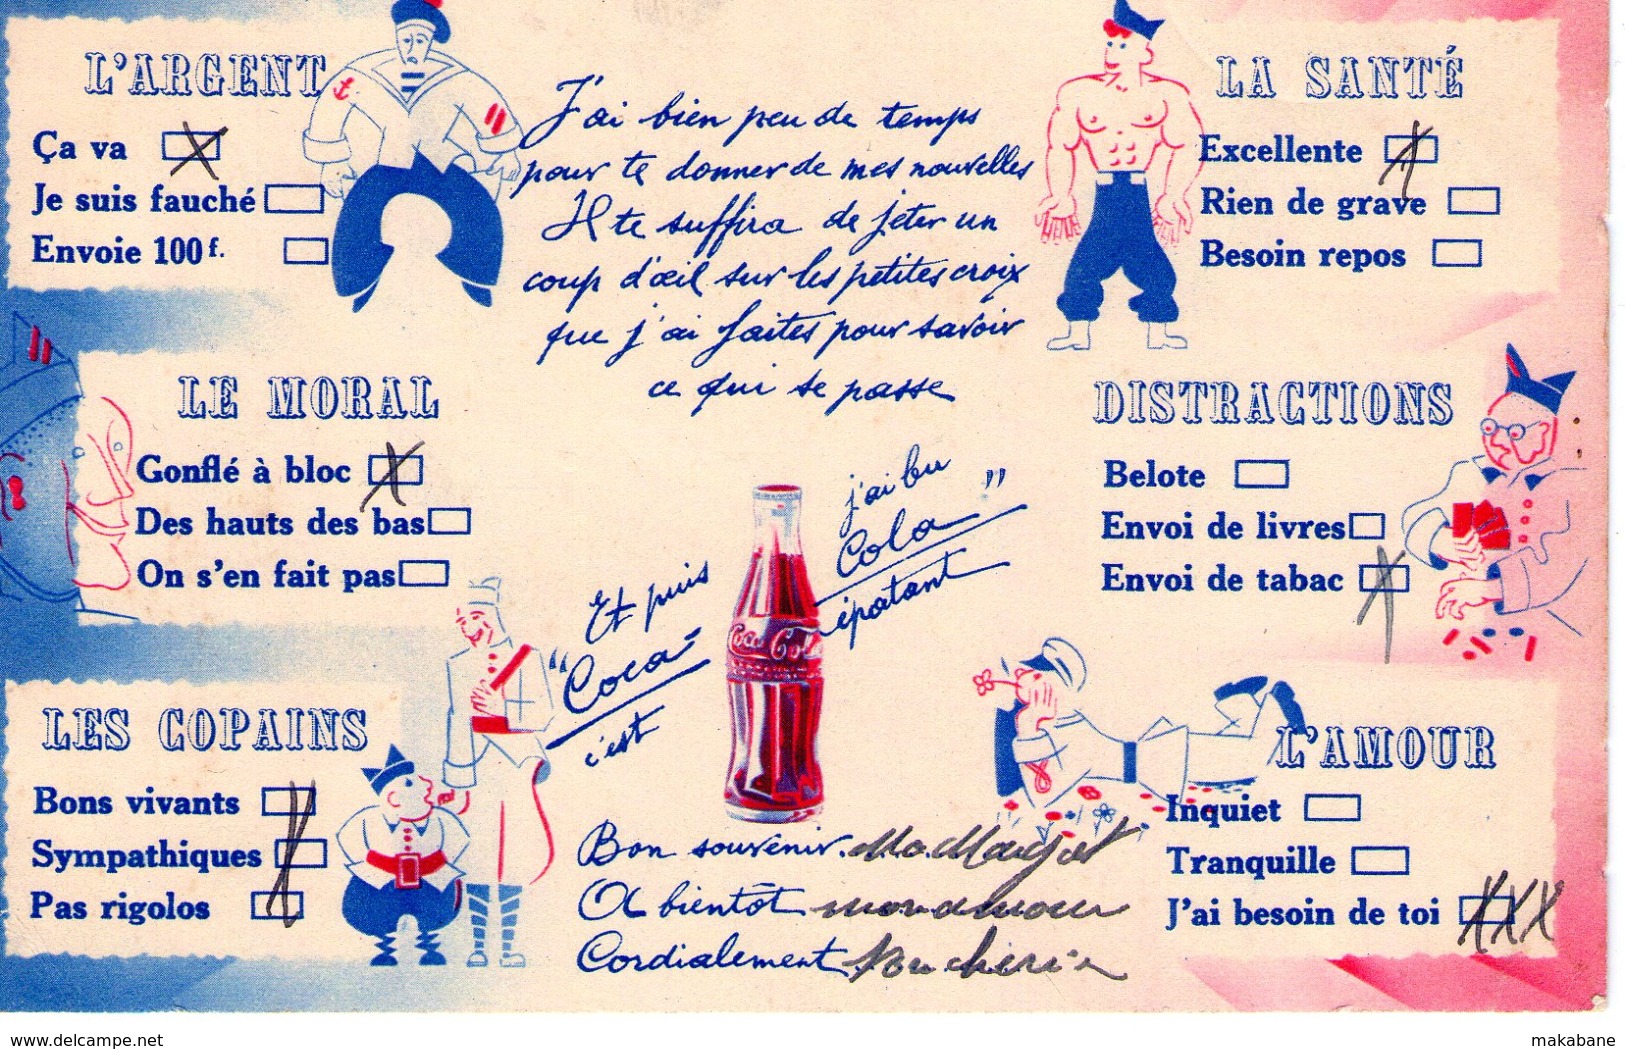 L'ARGENT
Ça va
Je suis fauché
Envoie 100 f.
J'ai bien peu de temps
pour te donner de mes nouvelles
Il te suffira de jeter un
coup d'œil sur les petites croix
que j'ai faites pour savoir
ce qui se passe
LA SANTÉ
Excellente
Rien de grave
Besoin repos
LE MORAL
Gonflé à bloc
Des hauts des bas
On s'en fait pas
DISTRACTIONS
Belote
Envoi de livres
Envoi de tabac
Et puis j'ai bu
"Coca-Cola"
c'est épatant
Coca-Cola
LES COPAINS
Bons vivants
Sympathiques
Pas rigolos
L'AMOUR
Inquiet
Tranquille
J'ai besoin de toi XXX
Bon souvenir. Ma Margot
A bientôt mon amour
Cordialement
www.delcampe.net
makabane